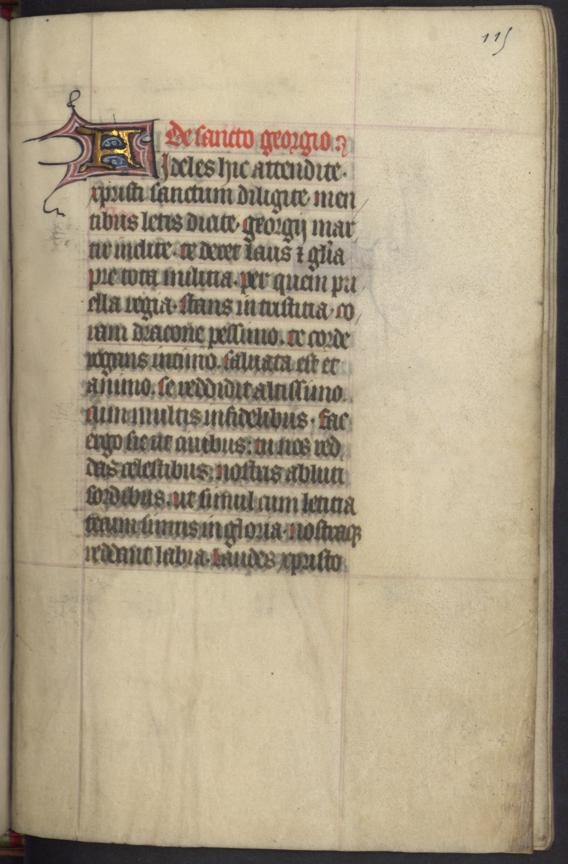 115
De sancto georgio
Fideles hic attendite·
xpristi sanctum diligite· men
tibus letis dicite· georgij mar
tir inclite· te decet laus ⁊ glīa
pre tota militia· per quem pu
ella regia· stans in tristitia· co
ram dracone pessimo· te corde
rogans intimo· saluata est et
animo· se reddidit altissimo·
cum multis infidelibus· fac
ergo sic cum ciuibus: tu nos red
das celestibus, nostris abluti
sordibus, ut simul cum leticia
tecum simus in gloria· nostraq;
reddant labia· laudes xpristo